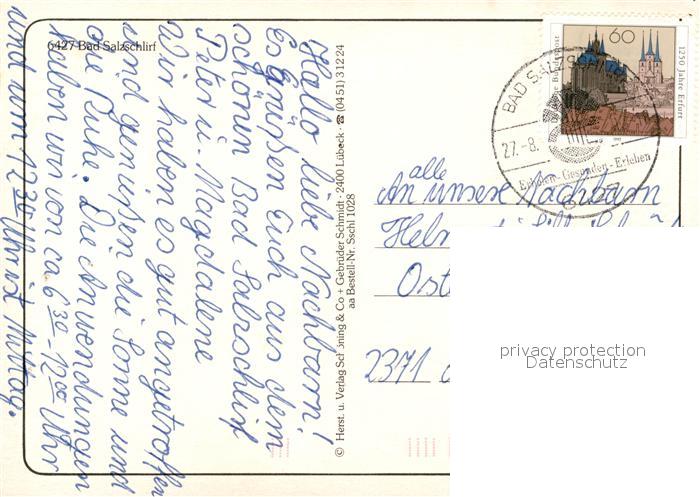 6427 Bad Salzschlirf
Hallo liebe Nachbarn!
Es grüßen Euch aus dem
schönen Bad Salzschlirf
Peter u. Magdalene
Wir haben es gut angetroffen
und genießen die Sonne und
die Ruhe. Die Anwendungen
haben wir von ca 6 30 - 12 00 Uhr
und um 12 30 Uhr ist Mittag.
© Herst. u. Verlag Schöning & Co + Gebrüder Schmidt · 2400 Lübeck · ☎ (04 51) 3 12 24
aa Bestell-Nr. Sschl 1028
60
Deutsche Bundespost
1250 Jahre Erfurt
BAD SALZS
27.-8.
Erholen - Gesunden - Erleben
alle
An unsere Nachbarn
Ost
2371
privacy protection
Datenschutz